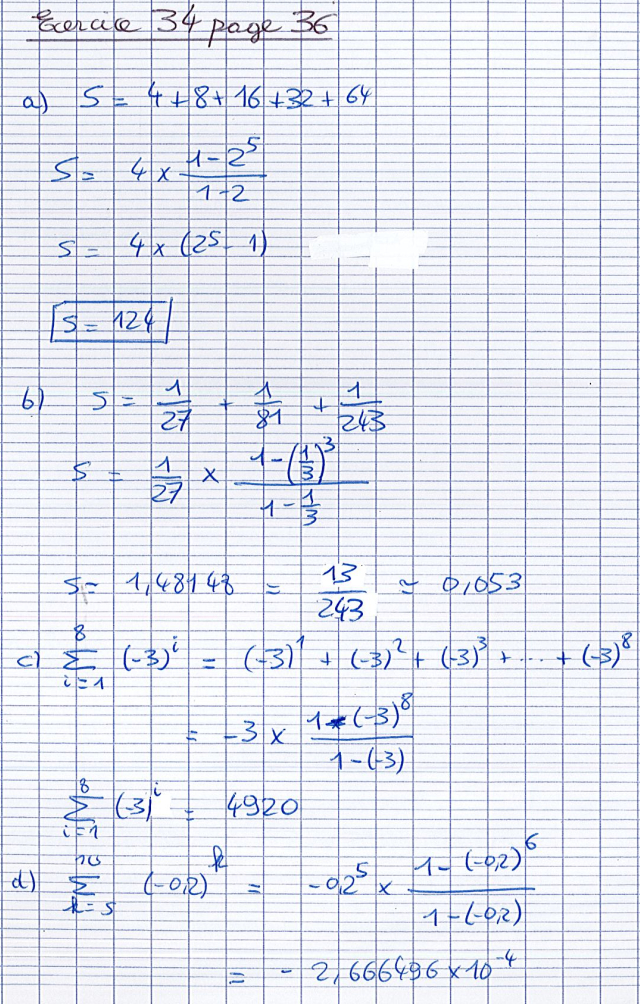 Exercice 34 page 36
a) S = 4 + 8 + 16 + 32 + 64
S = 4 × (1 - 2^5)/(1 - 2)
S = 4 × (2^5 - 1)
S = 124
b) S = 1/27 + 1/81 + 1/243
S = 1/27 × (1 - (1/3)^3)/(1 - 1/3)
S = 1,48148 = 13/243 ≃ 0,053
c) ∑_{i=1}^{8} (-3)^i = (-3)^1 + (-3)^2 + (-3)^3 + ... + (-3)^8
= -3 × (1 - (-3)^8)/(1 - (-3))
∑_{i=1}^{8} (-3)^i = 4920
d) ∑_{k=5}^{10} (-0,2)^k = -0,2^5 × (1 - (-0,2)^6)/(1 - (-0,2))
= - 2,666496 × 10^-4